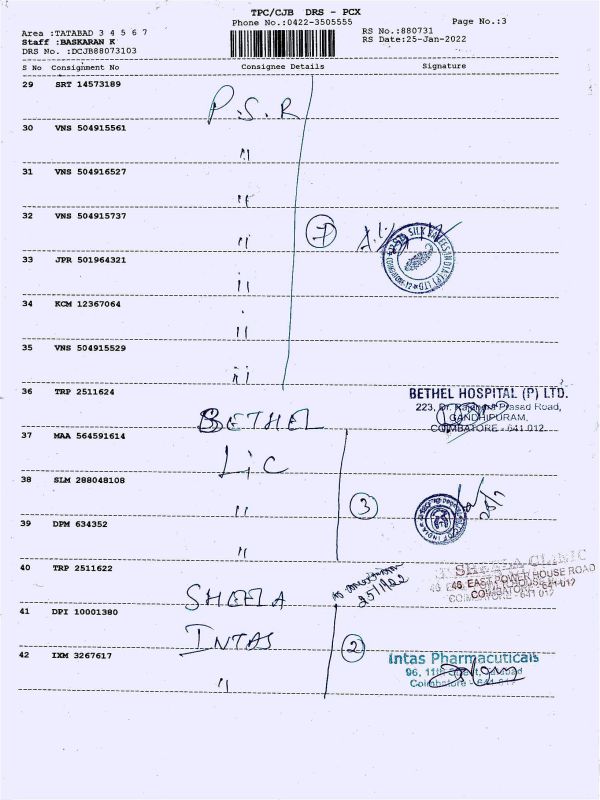 TPC/CJB DRS - PCX
Phone No.:0422-3505555
Page No.:3
Area :TATABAD 3 4 5 6 7
RS No.:880731
Staff :BASKARAN K
RS Date:25-Jan-2022
DRS No. :DCJB88073103
S No Consignment No Consignee Details Signature
29 SRT 14573189
P.S.R
30 VNS 504915561
"
31 VNS 504916527
"
32 VNS 504915737
" 7
33 JPR 501964321
"
34 KCM 12367064
"
35 VNS 504915529
"
36 TRP 2511624
BETHEL
BETHEL HOSPITAL (P) LTD.
223, Dr. Rajendra Prasad Road,
GANDHIPURAM,
COIMBATORE - 641 012.
37 MAA 564591614
LIC
38 SLM 288048108
" 3
39 DPM 634352
"
40 TRP 2511622
SHEELA
25/1/22
SHEELA CLINIC
46, EAST POWER HOUSE ROAD
COIMBATORE-641 012
41 DPI 10001380
INTAS
2
42 IXM 3267617
"
Intas Pharmacuticals
96, 11th Street, Tatabad
Coimbatore - 641 012